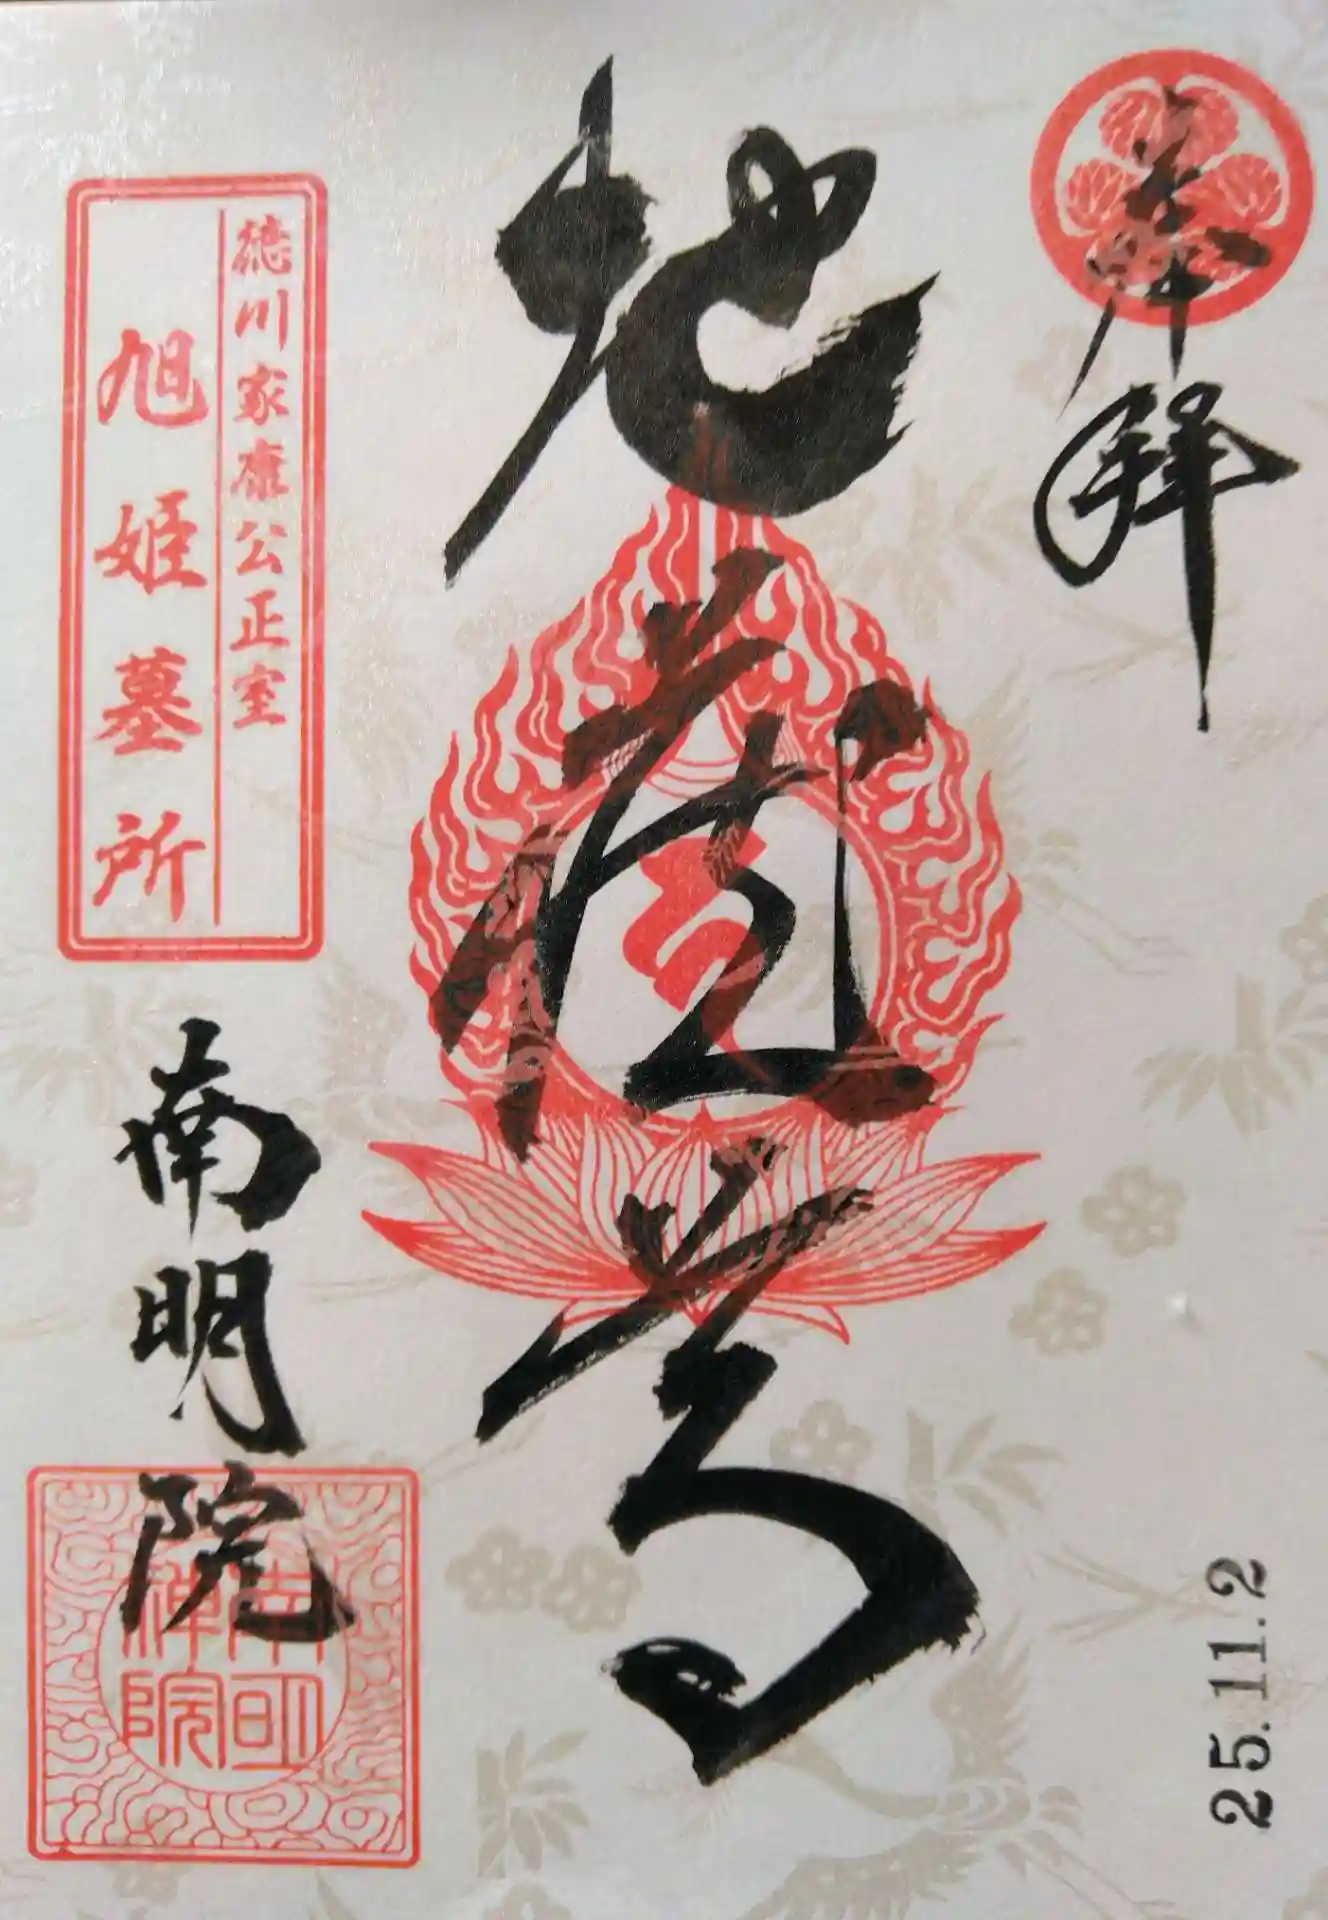 奉拜
地蔵尊
徳川家康公正室
旭姫墓所
南明院
南明
禅院
25.11.2